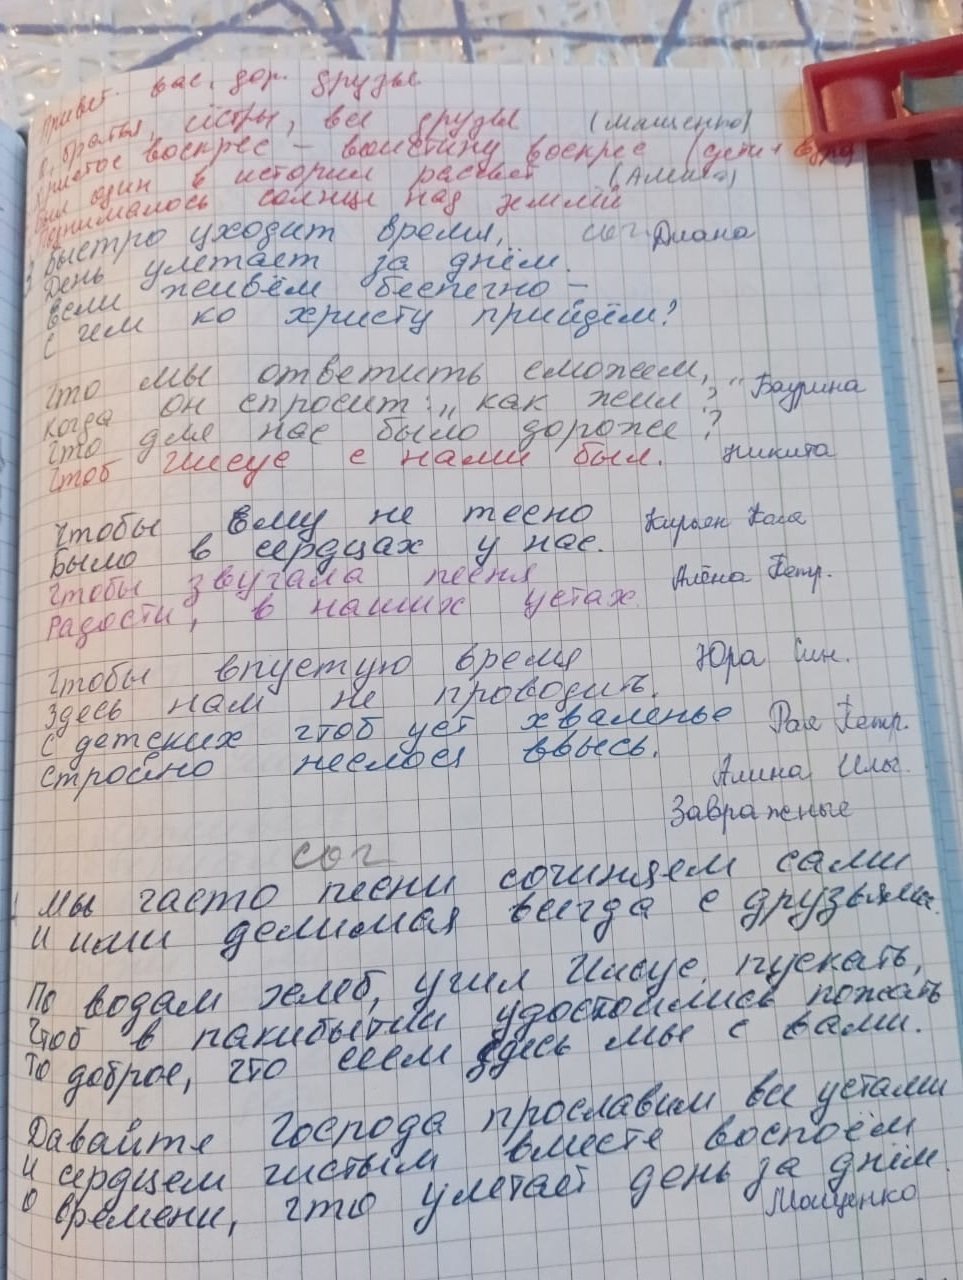 Привет. вас, дор. друзья
братья, сёстры, все друзья (Мащенко)
Христос воскрес – воистину воскрес (дети +
один в истории рассвет (Алина)
Поднималось солнце над землёй
Быстро уходит время, сог. Диана
День улетает за днём.
Если живём беспечно –
С чем ко христу прийдём?
Что мы ответить сможем,
Когда он спросит: „как жил?" Баурина
Что для нас было дороже?
Чтоб Иисус с нами был. Никита
Чтобы Ему не тесно Кирьян Коля
Было в сердцах у нас.
Чтобы звучала песня Алёна Петр.
Радости, в наших устах.
Чтобы впустую время Юра Син.
Здесь нам не проводить.
С детских чтоб уст хваленье Рая Петр.
Стройно неслося ввысь.
Алина Ильг.
Завражные
сог
Мы часто песни сочиняем сами
И ими делимся всегда с друзьями.
По водам хлеб, учил Иисус, пускать,
Чтоб в пакибытии удостоились пожать
То доброе, что сеем здесь мы с вами.
Давайте Господа прославим все устами
И сердцем чистым вместе воспоём
О времени, что улетает день за днём.
Мащенко